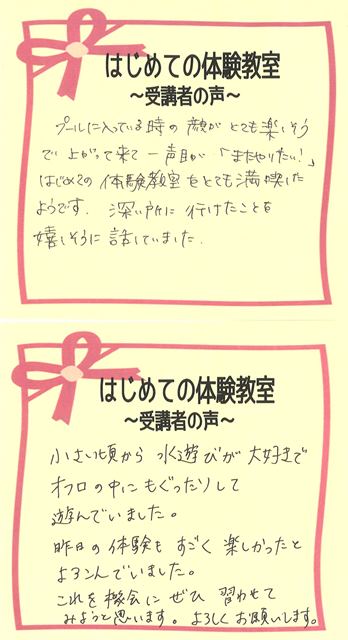 はじめての体験教室
～受講者の声～
プールに入っている時の顔がとても楽しそう
で上がって来て一声目が「またやりたい！」
はじめての体験教室をとても満喫した
ようです。深い所に行けたことを
嬉しそうに話していました。
はじめての体験教室
～受講者の声～
小さい頃から水遊びが大好きで
オフロの中にもぐったりして
遊んでいました。
昨日の体験もすごく楽しかったと
よろこんでいました。
これを機会にぜひ習わせて
みようと思います。よろしくお願いします。